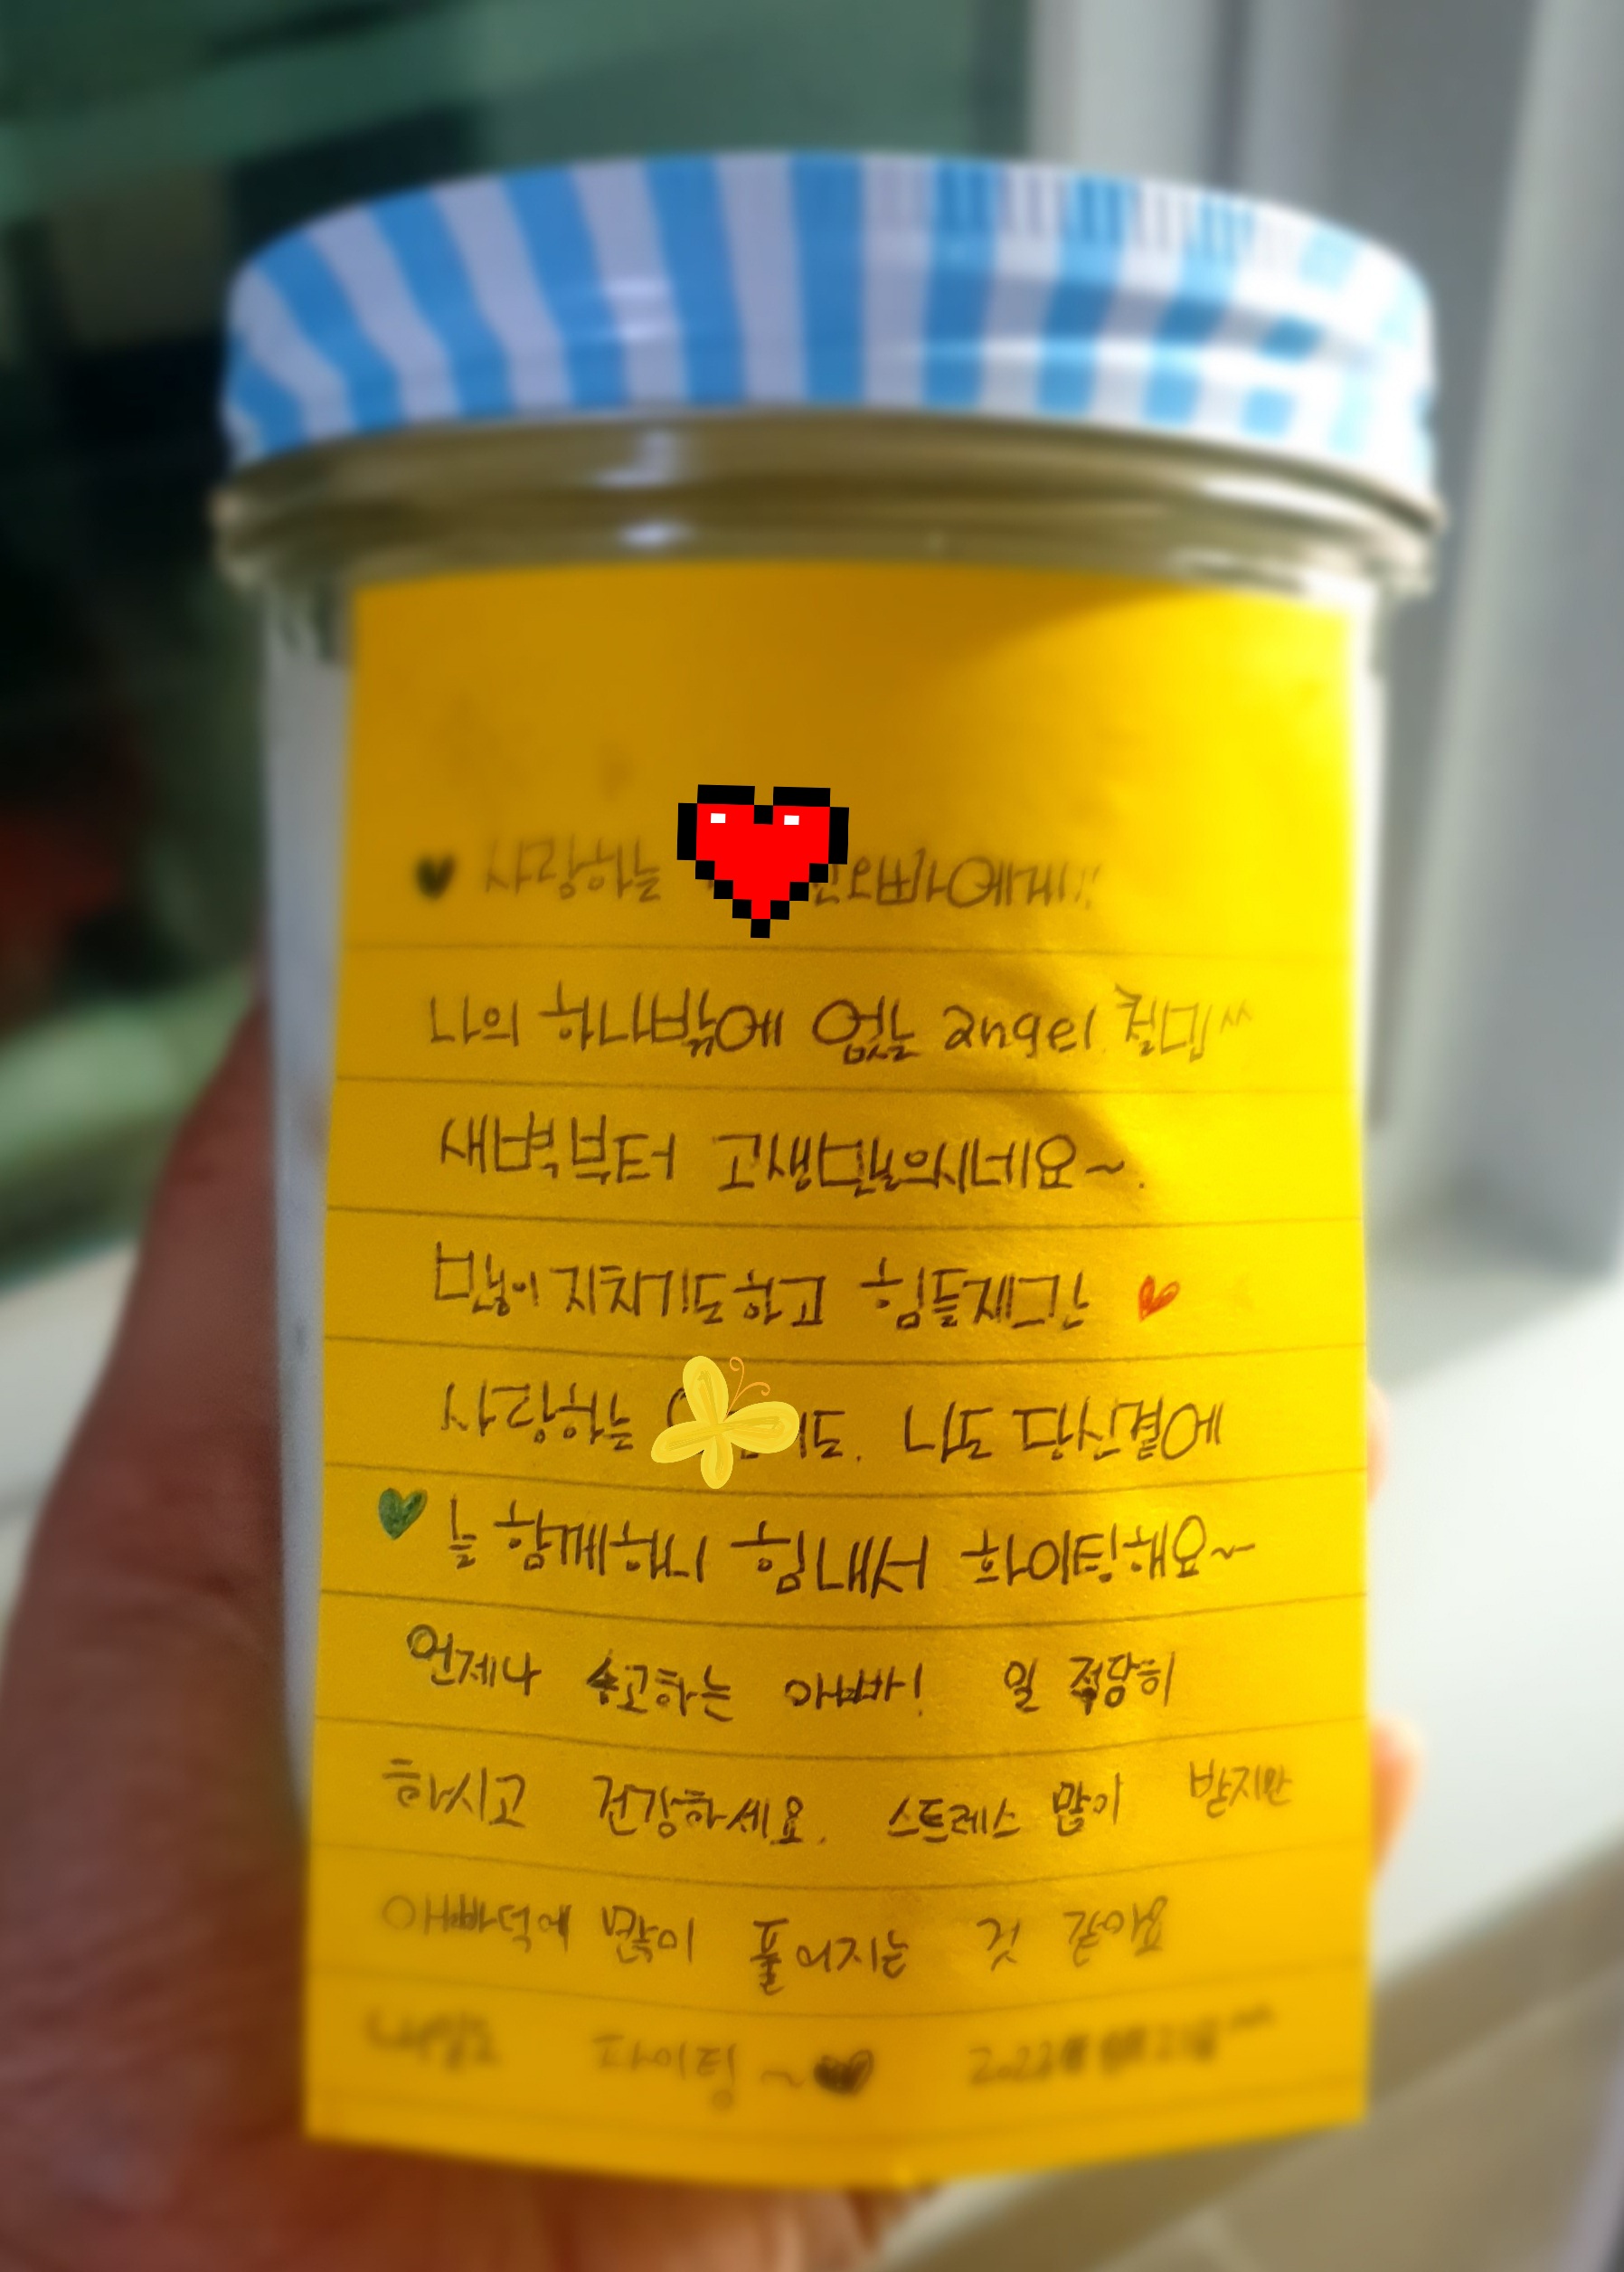 사랑하는 오빠야에게!!!
나의 하나밖에 없는 angel 켈밉^^
새벽부터 고생많으시네요~.
많이 지치기도하고 힘들제그간
사랑하는 도. 나도 당신곁에
늘 함께하니 힘내서 화이팅해요~
언제나 수고하는 아빠! 일 적당히
하시고 건강하세요. 스트레스 많이 받지만
아빠덕에 많이 풀어지는 것 같아요
파이팅 ~